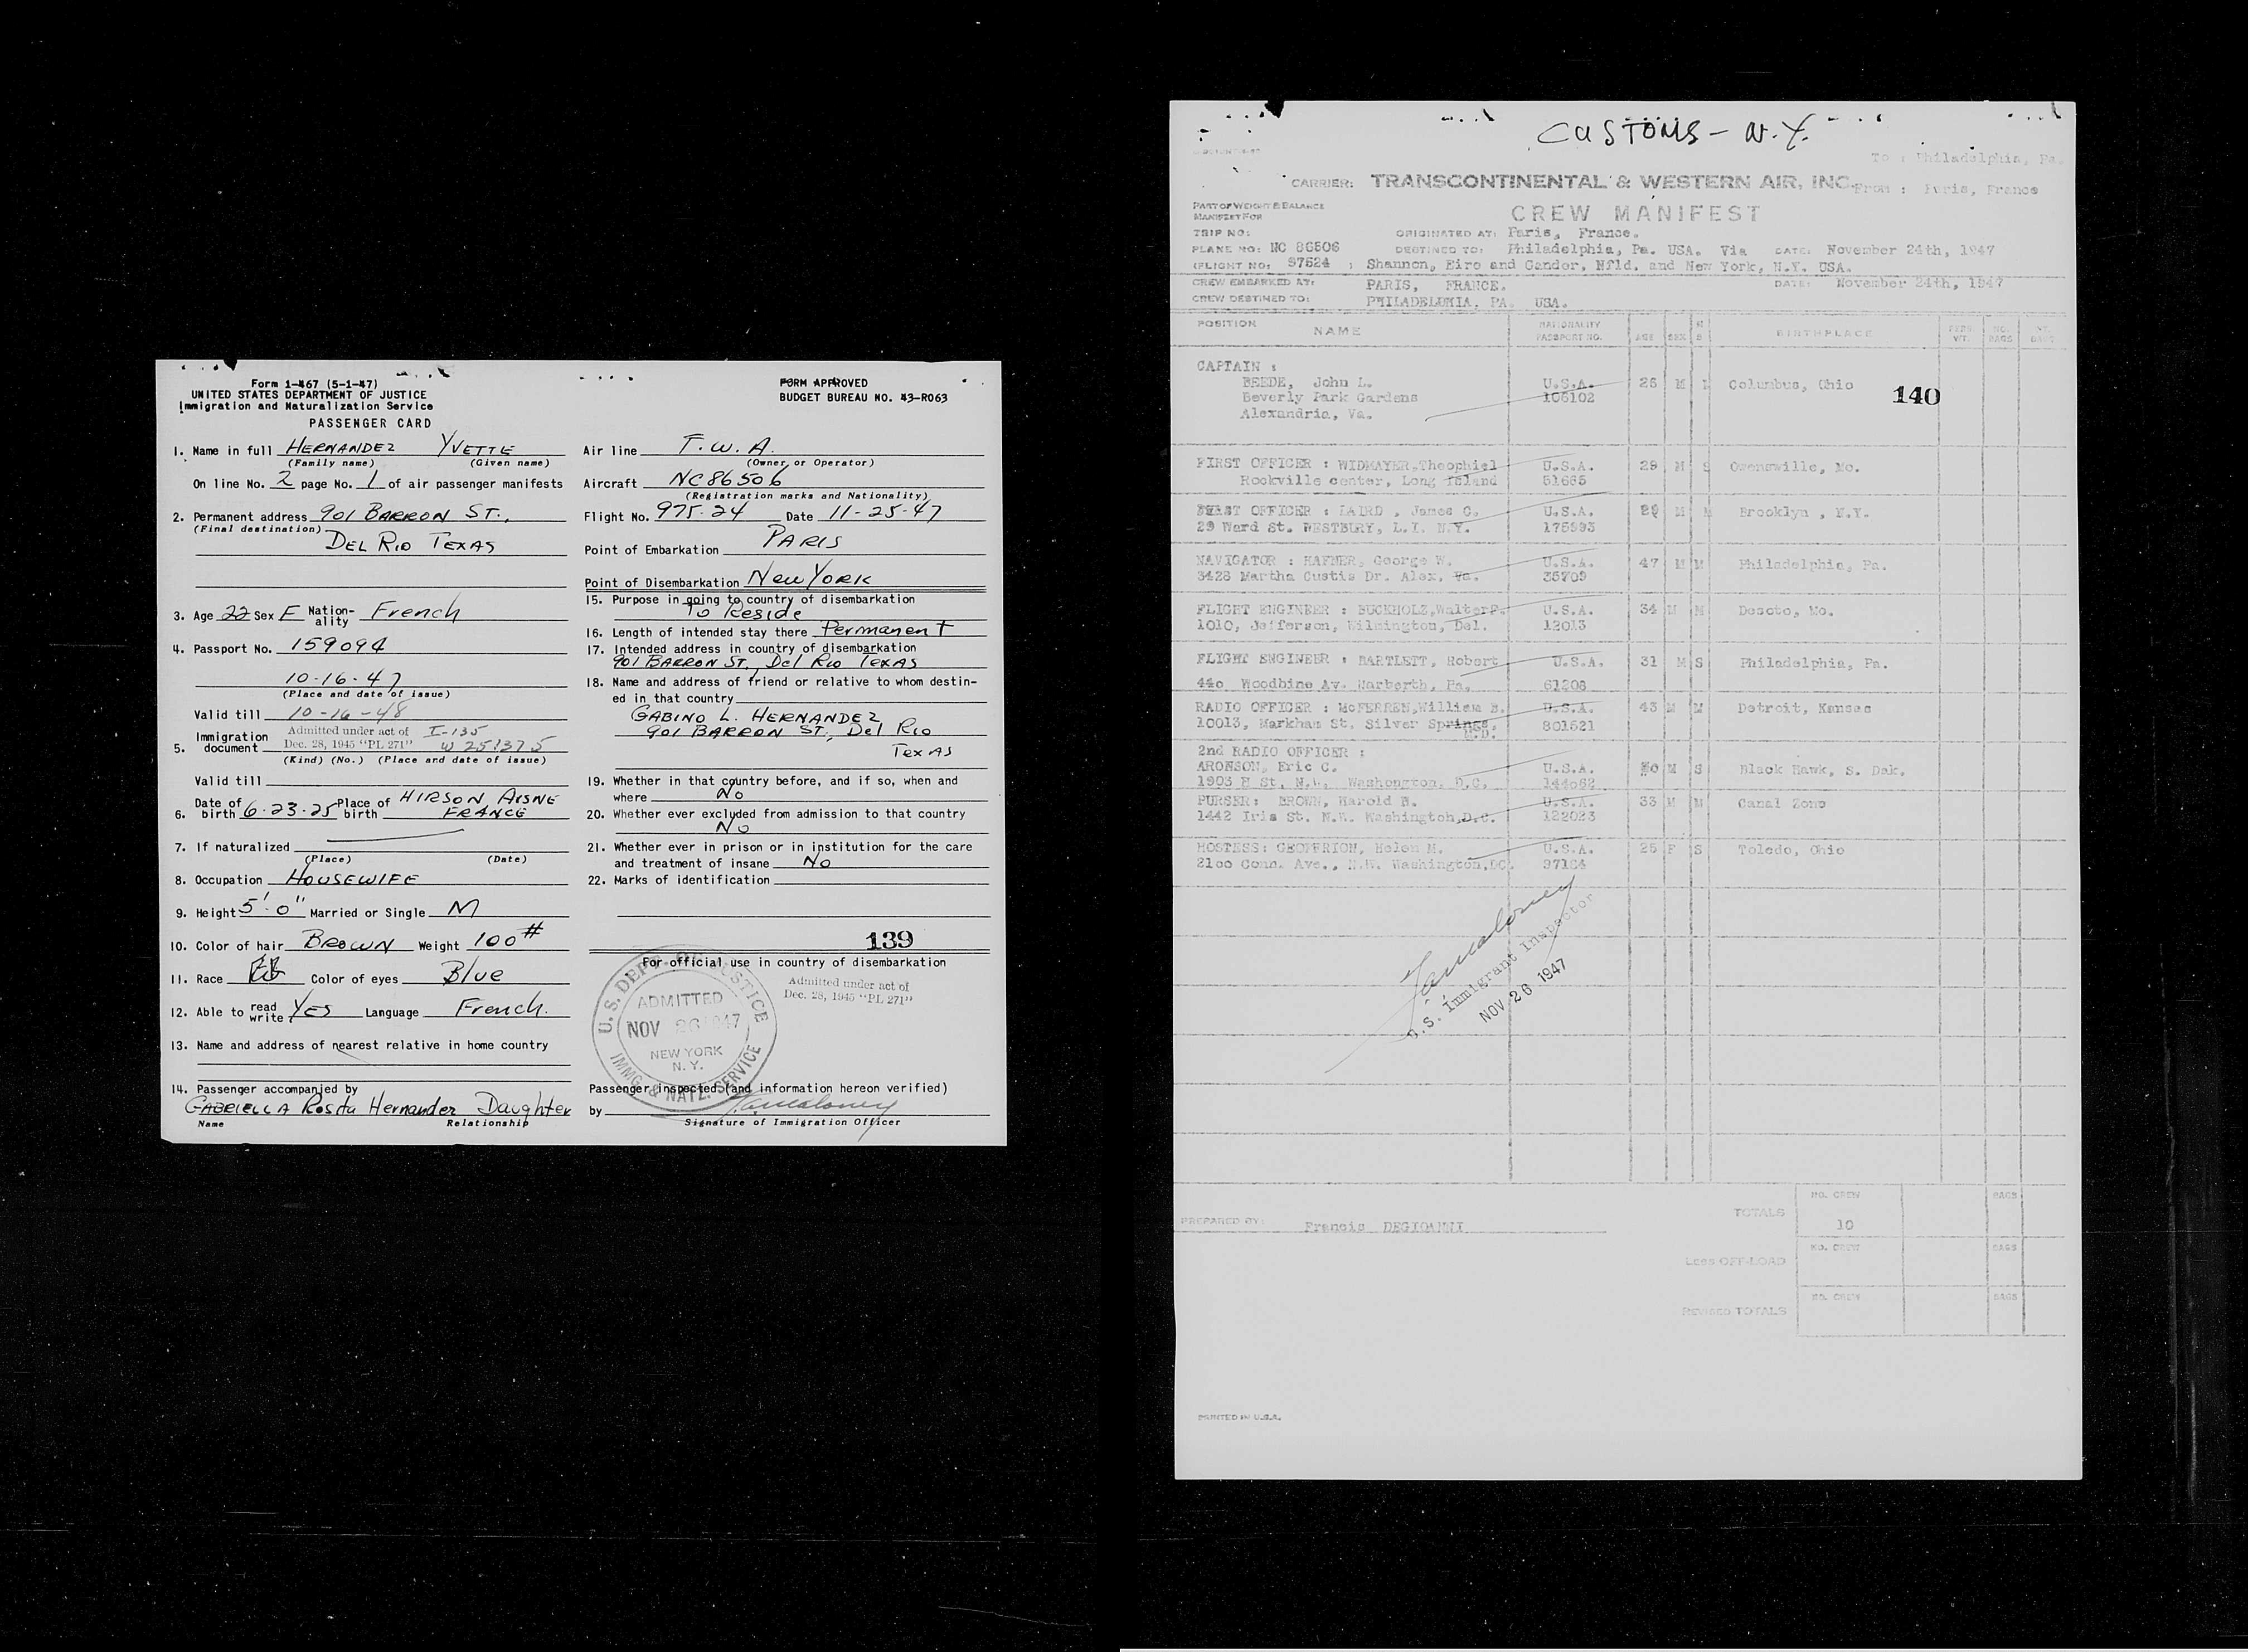 Form 1-467 (5-1-47)
UNITED STATES DEPARTMENT OF JUSTICE
Immigration and Naturalization Service
FORM APPROVED
BUDGET BUREAU NO. 43-R063
PASSENGER CARD
1. Name in full HERNANDEZ YVETTE
(Family name) (Given name)
On line No. 2 page No. 1 of air passenger manifests
2. Permanent address 901 BARRON ST.,
(Final destination)
DEL RIO TEXAS
3. Age 22 Sex F Nation-ality French
4. Passport No. 159094
10-16-47
(Place and date of issue)
Valid till 10-16-48
Admitted under act of I-135
5. Immigration document Dec. 28, 1945 "PL 271" W 251375
(Kind) (No.) (Place and date of issue)
Valid till
6. Date of birth 6-23-25 Place of birth HIRSON AISNE
FRANCE
7. If naturalized
(Place) (Date)
8. Occupation HOUSEWIFE
9. Height 5'-0" Married or Single M
10. Color of hair BROWN Weight 100#
11. Race Color of eyes Blue
12. Able to read write YES Language French.
13. Name and address of nearest relative in home country
14. Passenger accompanied by
GABRIELLA Rosita Hernandez Daughter
Name Relationship
Air line T.W.A.
(Owner or Operator)
Aircraft NC86506
(Registration marks and Nationality)
Flight No. 975-24 Date 11-25-47
Point of Embarkation PARIS
Point of Disembarkation New York
15. Purpose in going to country of disembarkation
To Reside
16. Length of intended stay there Permanent
17. Intended address in country of disembarkation
901 BARRON ST., Del Rio Texas
18. Name and address of friend or relative to whom destin-
ed in that country
GABINO L. HERNANDEZ
901 BARRON ST, Del Rio
Texas
19. Whether in that country before, and if so, when and
where No
20. Whether ever excluded from admission to that country
No
21. Whether ever in prison or in institution for the care
and treatment of insane No
22. Marks of identification
139
For official use in country of disembarkation
Admitted under act of
Dec. 28, 1945 "PL 271"
U.S. DEPT. OF JUSTICE
ADMITTED
NOV 26 1947
NEW YORK
N. Y.
IMMG. & NATZ. SERVICE
Passenger inspected (and information hereon verified)
by
Signature of Immigration Officer
CUSTOMS - N.Y.
To : Philadelphia, Pa.
CARRIER: TRANSCONTINENTAL & WESTERN AIR, INC.
From : Paris, France
PART OF WEIGHT & BALANCE
MANIFEST FOR
CREW MANIFEST
TRIP NO: ORIGINATED AT: Paris, France.
PLANE NO: NC 86506 DESTINED TO: Philadelphia, Pa. USA. Via DATE: November 24th, 1947
(FLIGHT NO: 97524 ) Shannon, Eiro and Gander, Nfld. and New York, N.Y. USA.
CREW EMBARKED AT: PARIS, FRANCE. DATE: November 24th, 1947
CREW DESTINED TO: PHILADELPHIA. PA. USA.
POSITION NAME NATIONALITY PASSPORT NO. AGE SEX M S BIRTHPLACE PERS WT. NO. BAGS WT. BAGS
CAPTAIN :
BEEDE, John L. U.S.A. 26 M Columbus, Ohio 140
Beverly Park Gardens 106102
Alexandria, Va.
FIRST OFFICER : WIDMAYER, Theophiel U.S.A. 29 M S Owensville, Mo.
Rockville center, Long Island 51665
FIRST OFFICER : LAIRD , James C. U.S.A. 29 M M Brooklyn , N.Y.
29 Ward St. WESTBURY, L.I. N.Y. 175993
NAVIGATOR : HAFNER, George W. U.S.A. 47 M M Philadelphia, Pa.
3428 Martha Custis Dr. Alex, Va. 35709
FLIGHT ENGINEER : BUCKHOLZ, Walter P. U.S.A. 34 M M Desoto, Mo.
1010, Jefferson, Wilmington, Del. 12013
FLIGHT ENGINEER : BARTLETT, Robert U.S.A. 31 M S Philadelphia, Pa.
440 Woodbine Av. Narberth, Pa. 61208
RADIO OFFICER : McFERREN, William B. U.S.A. 43 M M Detroit, Kansas
10013, Markham St. Silver Springs, 801521
2nd RADIO OFFICER :
ARONSON, Eric C. U.S.A. M S Black Hawk, S. Dak.
1903 E St. N.W. Washongton, D.C. 144662
PURSER: BROWN, Harold N. U.S.A. 33 M M Canal Zone
1442 Iris St. N.W. Washington, D.C. 122023
HOSTESS: GEOFFRION, Helen M. U.S.A. 25 F S Toledo, Ohio
2100 Conn. Ave., N.W. Washington, DC. 97164
U.S. Immigrant Inspector
NOV 26 1947
NO. CREW BAGS
TOTALS 10
PREPARED BY: Francis DEGIOANNI
NO. CREW BAGS
LESS OFF-LOAD
NO. CREW BAGS
REVISED TOTALS
PRINTED IN U.S.A.